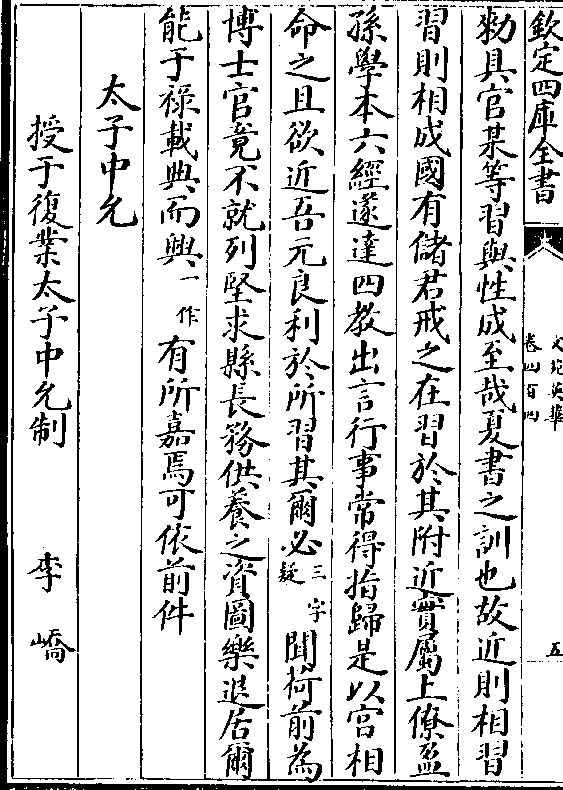 欽定四庫全書
文苑英華
卷四百四
五
勑具官某等習與性成至哉夏書之訓也故近則相習
習則相成國有儲君戒之在習於其附近實屬上僚盈
孫學本六經遂達四教出言行事常得指歸是以宮相
命之且欲近吾元良利於所習其爾必三字疑聞荷前為
博士官竟不就列堅求縣長務供養之資圖樂退居爾
能于祿載典而興一作有所嘉焉可依前件
太子中允
授于復業太子中允制 李嶠